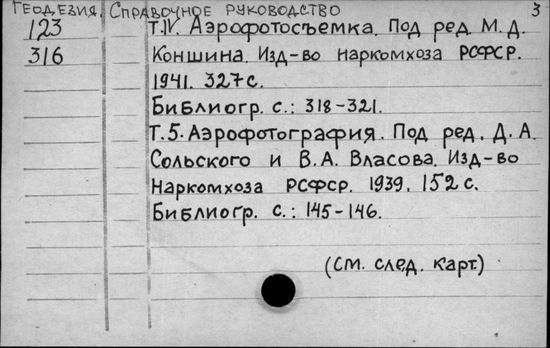 Геодезия. Справочное руководство 3
123 Т.IV. Аэрофотосъемка. Под ред. М.Д.
316 Коншина. Изд-во наркомхоза РСФСР.
1941. 327 с.
Библиогр. с.: 318-321.
Т.5. Аэрофотография. Под ред. Д.А.
Сольского и В.А. Власова. Изд-во
Наркомхоза РСФСР. 1939. 152 с.
Библиогр. с.: 145-146.
(См. след. карт.)